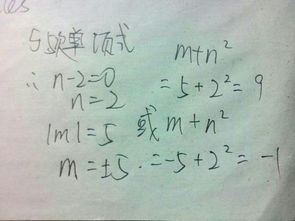 5次单项式
∴ n-2=0
n=2
|m|=5
m=±5.
m+n²
=5+2²=9
或 m+n²
=-5+2²=-1